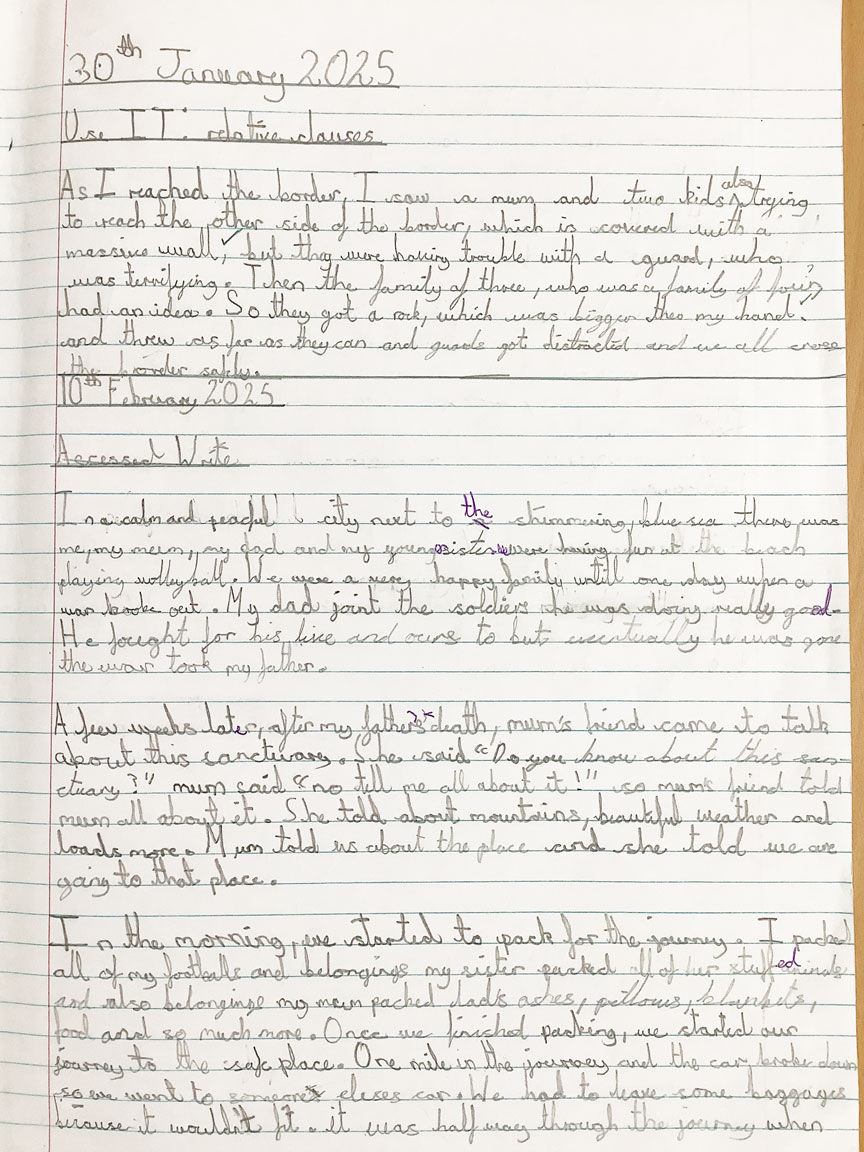 30th January 2025
Use IT: relative clauses
As I reached the border, I saw a mum and two kids also trying
to reach the other side of the border, which is covered with a
massive wall, but they were having trouble with a guard, who
was terrifying. Then the family of three, who was a family of four,
had an idea. So they got a rock, which was bigger then my hand,
and threw as far as they can and guards got distracted and we all cross
the border safely.
10th February 2025
Accessed Write
In a calm and peacful city next to the shimmering, blue sea there was
me, my mum, my dad and my young sister were having fun at the beach
playing volleyball. We were a very happy family untill one day when a
war broke out. My dad joint the soldiers he was doing really good.
He fought for his live and ours to but eventually he was gone
the war took my father.
A few weeks later, after my father's death, mum's friend came to talk
about this sanctuary. She said "Do you know about this san-
ctuary?" mum said "no tell me all about it!" so mum's friend told
mum all about it. She told about mountains, beautiful weather and
loads more. Mum told us about the place and she told we are
going to that place.
In the morning, we started to pack for the journey. I packed
all of my footballs and belongings my sister packed all of her stuffed
and also belongings my mum packed dad's ashes, pillows, blankets,
food and so much more. Once we finished packing, we started our
journey to the safe place. One mile in the journey and the car broke down
so we went to someones elses car. We had to leave some baggages
because it wouldn't fit. it was half way through the journey when